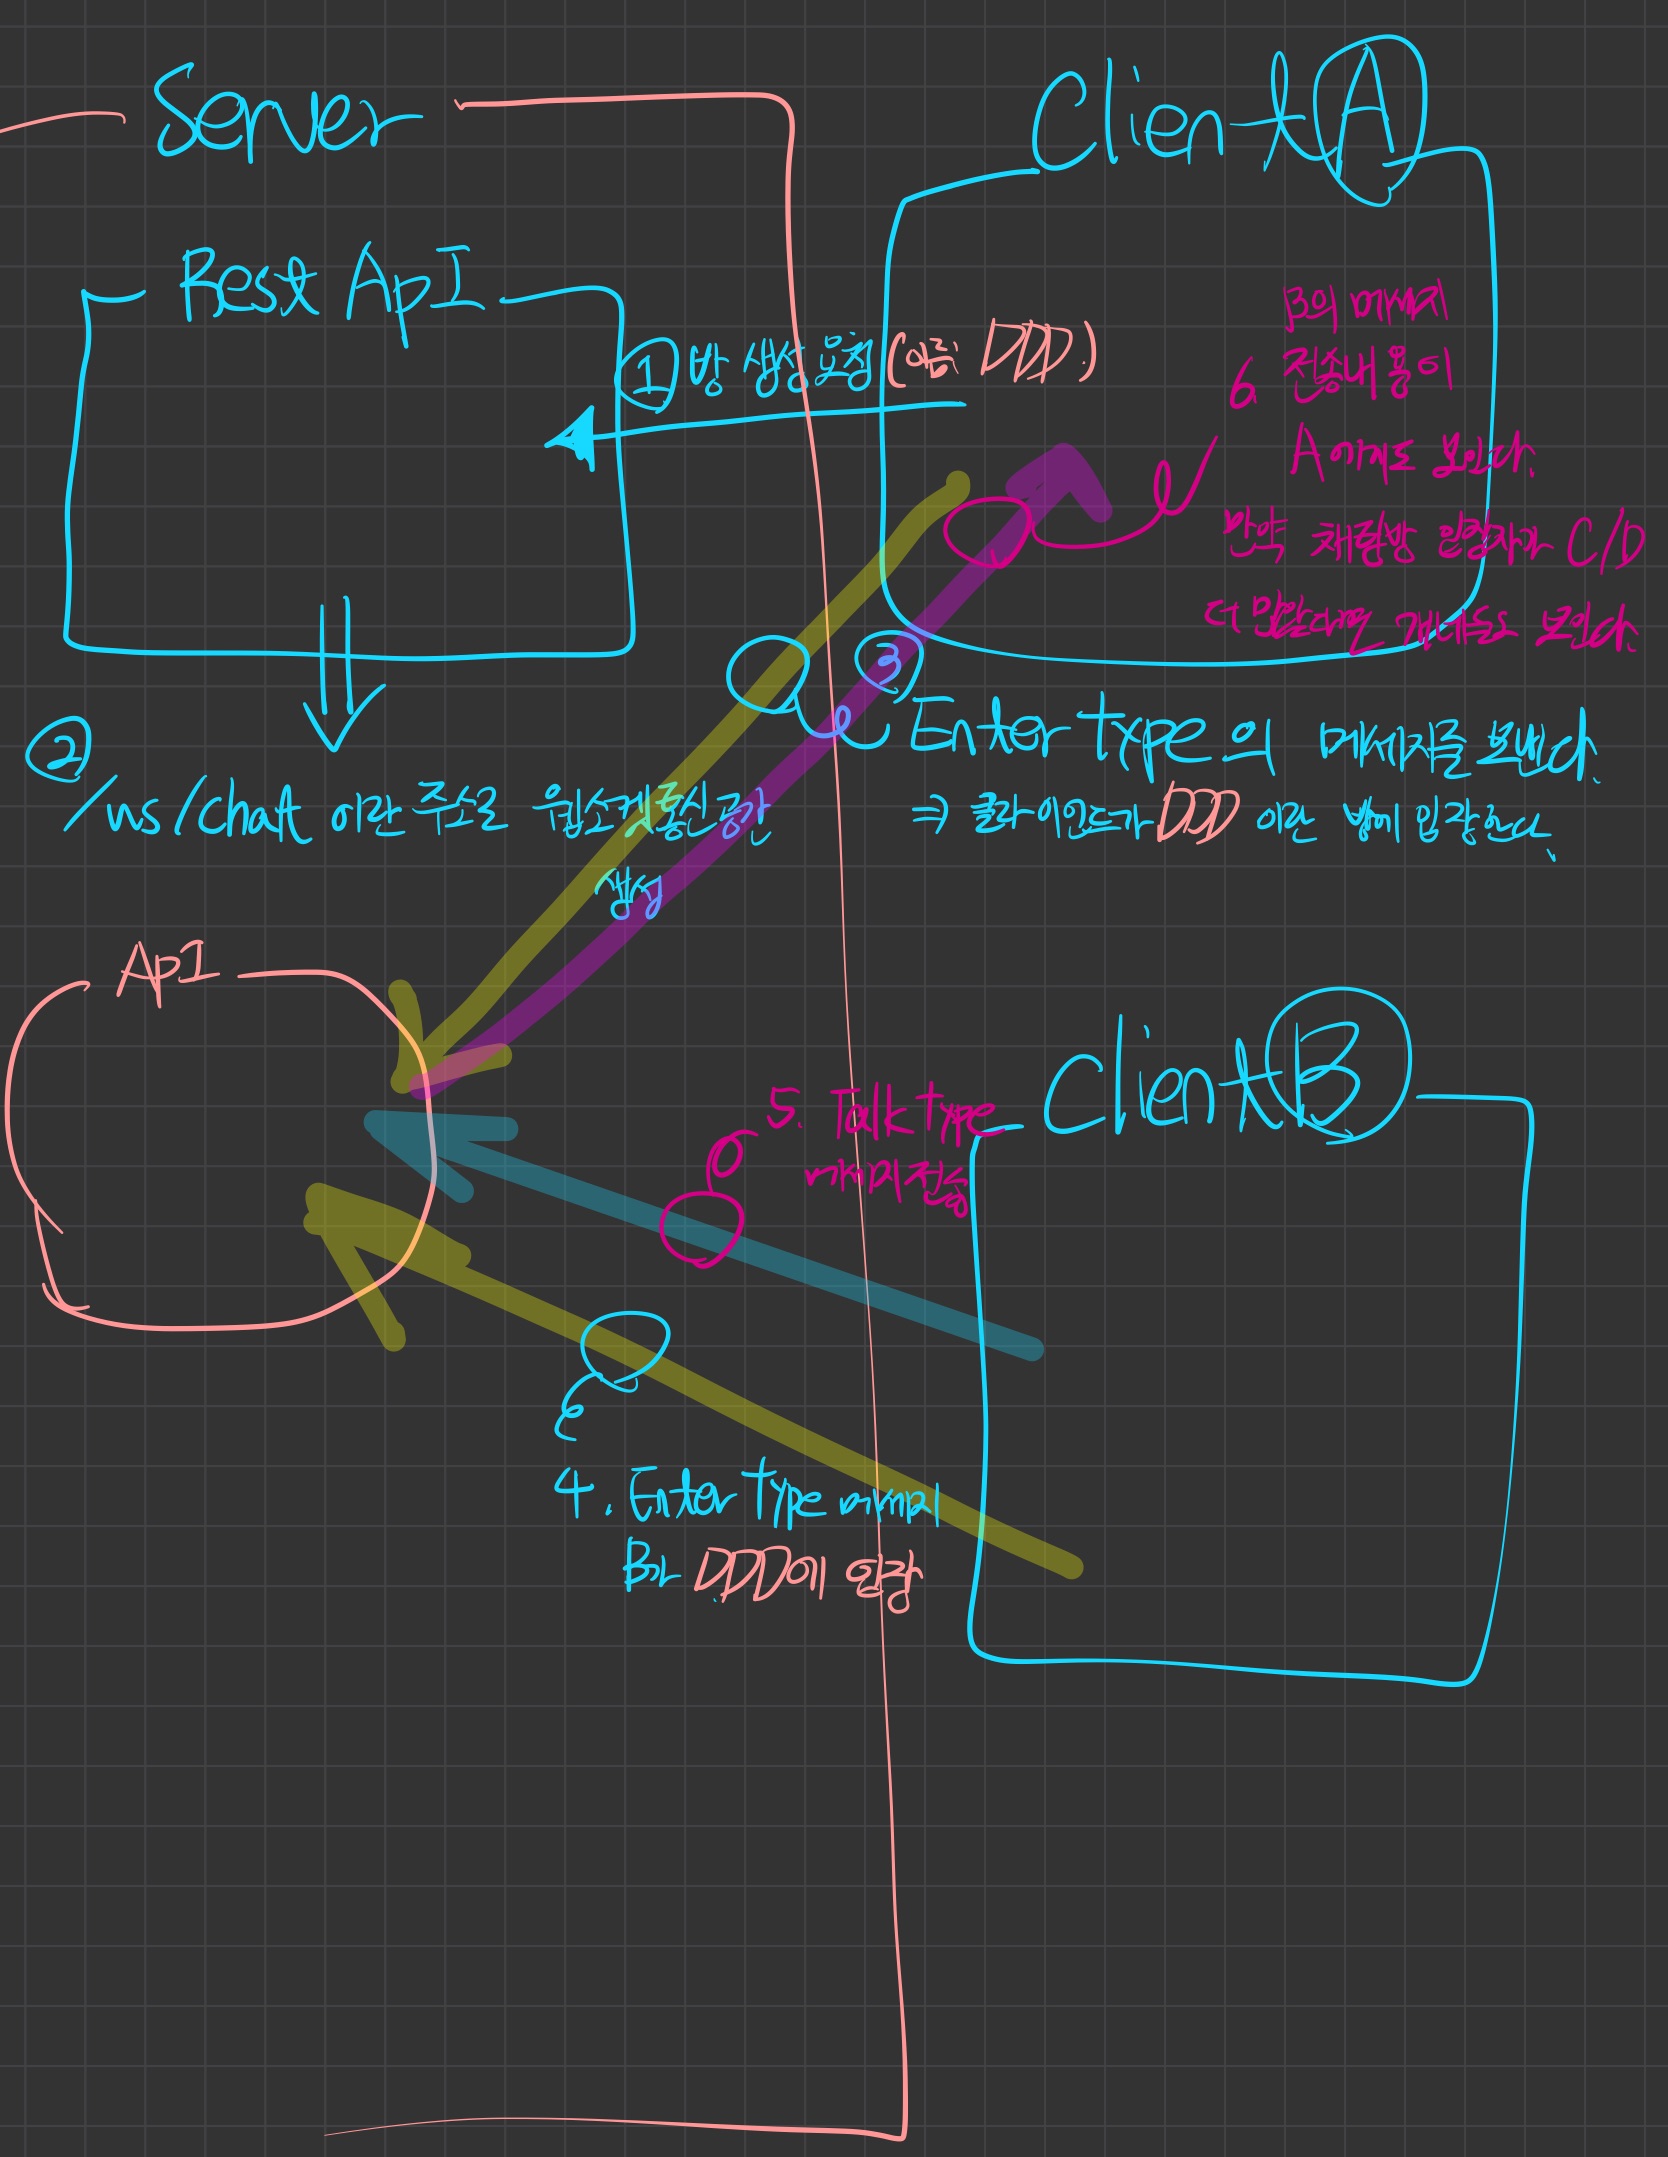 Server
Client A
Rest ApI
① 방 생성요청 (이름: DDD.)
B의 메세지
6. 전송내용이
A에게도 보인다.
만약 채팅방 입장자가 C/D
더 있다면 걔네들도 보인다.
②
/ws/chat 이란 주소로 웹소켓통신공간
생성
③ Enter type의 메세지를 보낸다.
⇒ 클라이언트가 DDD 이란 방에 입장한다.
ApI
Client B
5. Talk type
메세지전송
4. Enter Type 메세지
B가 DDD에 입장